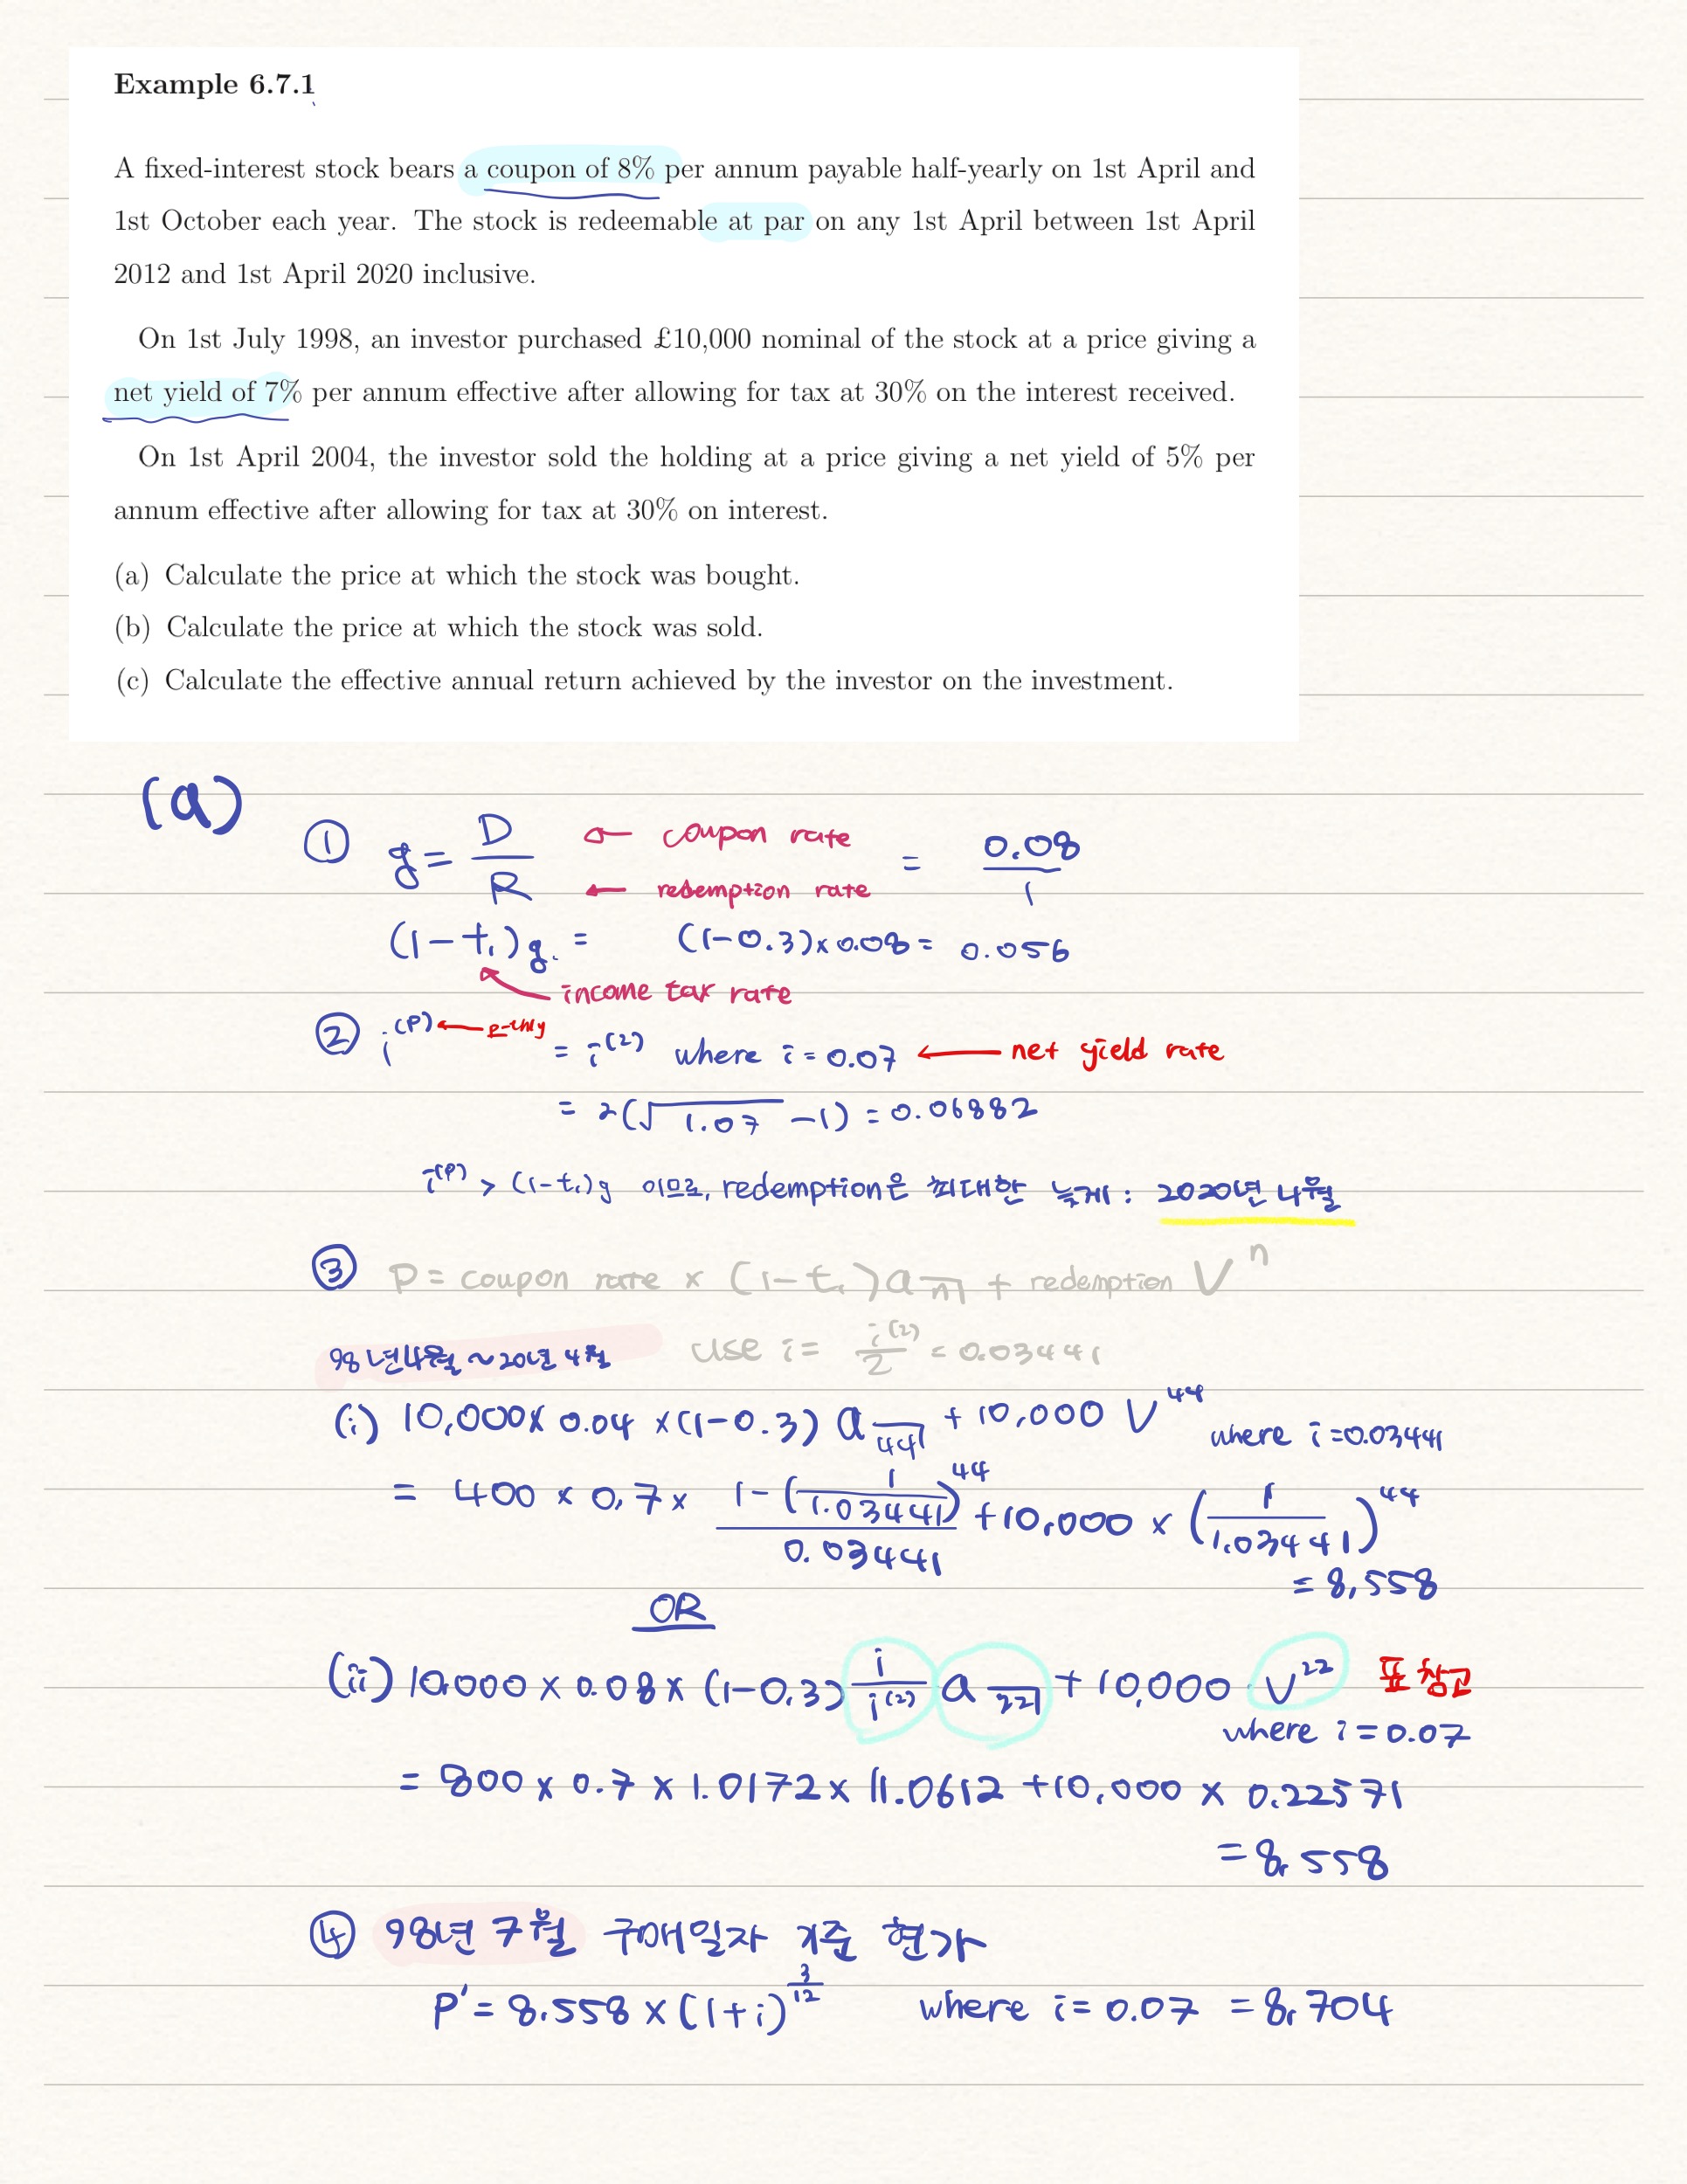 Example 6.7.1
A fixed-interest stock bears a coupon of 8% per annum payable half-yearly on 1st April and
1st October each year. The stock is redeemable at par on any 1st April between 1st April
2012 and 1st April 2020 inclusive.
On 1st July 1998, an investor purchased £10,000 nominal of the stock at a price giving a
net yield of 7% per annum effective after allowing for tax at 30% on the interest received.
On 1st April 2004, the investor sold the holding at a price giving a net yield of 5% per
annum effective after allowing for tax at 30% on interest.
(a) Calculate the price at which the stock was bought.
(b) Calculate the price at which the stock was sold.
(c) Calculate the effective annual return achieved by the investor on the investment.
(a)
① g = D/R ← coupon rate ← redemption rate = 0.08/1
(1-t₁)g = (1-0.3)×0.08 = 0.056
income tax rate
② i^(p) ← p-thly = i^(2) where i = 0.07 ← net yield rate
= 2(√1.07 - 1) = 0.06882
i^(p) > (1-t₁)g 이므로, redemption은 최대한 늦게 : 2020년 4월
③ P = coupon rate × (1-t₁) a n⌉ + redemption V^n
98년4월 ~ 20년 4월 use i = i^(2)/2 = 0.03441
(i) 10,000 × 0.04 × (1-0.3) a 44⌉ + 10,000 V^44 where i = 0.03441
= 400 × 0.7 × (1-(1/1.03441)^44)/0.03441 + 10,000 × (1/1.03441)^44
= 8,558
OR
(ii) 10,000 × 0.08 × (1-0.3) i/i^(2) a 22⌉ + 10,000 · V^22 표 참고
where i = 0.07
= 800 × 0.7 × 1.0172 × 11.0612 + 10,000 × 0.22571
= 8,558
④ 98년 7월 구매일자 기준 현가
P' = 8.558 × (1+i)^(3/12) where i = 0.07 = 8,704